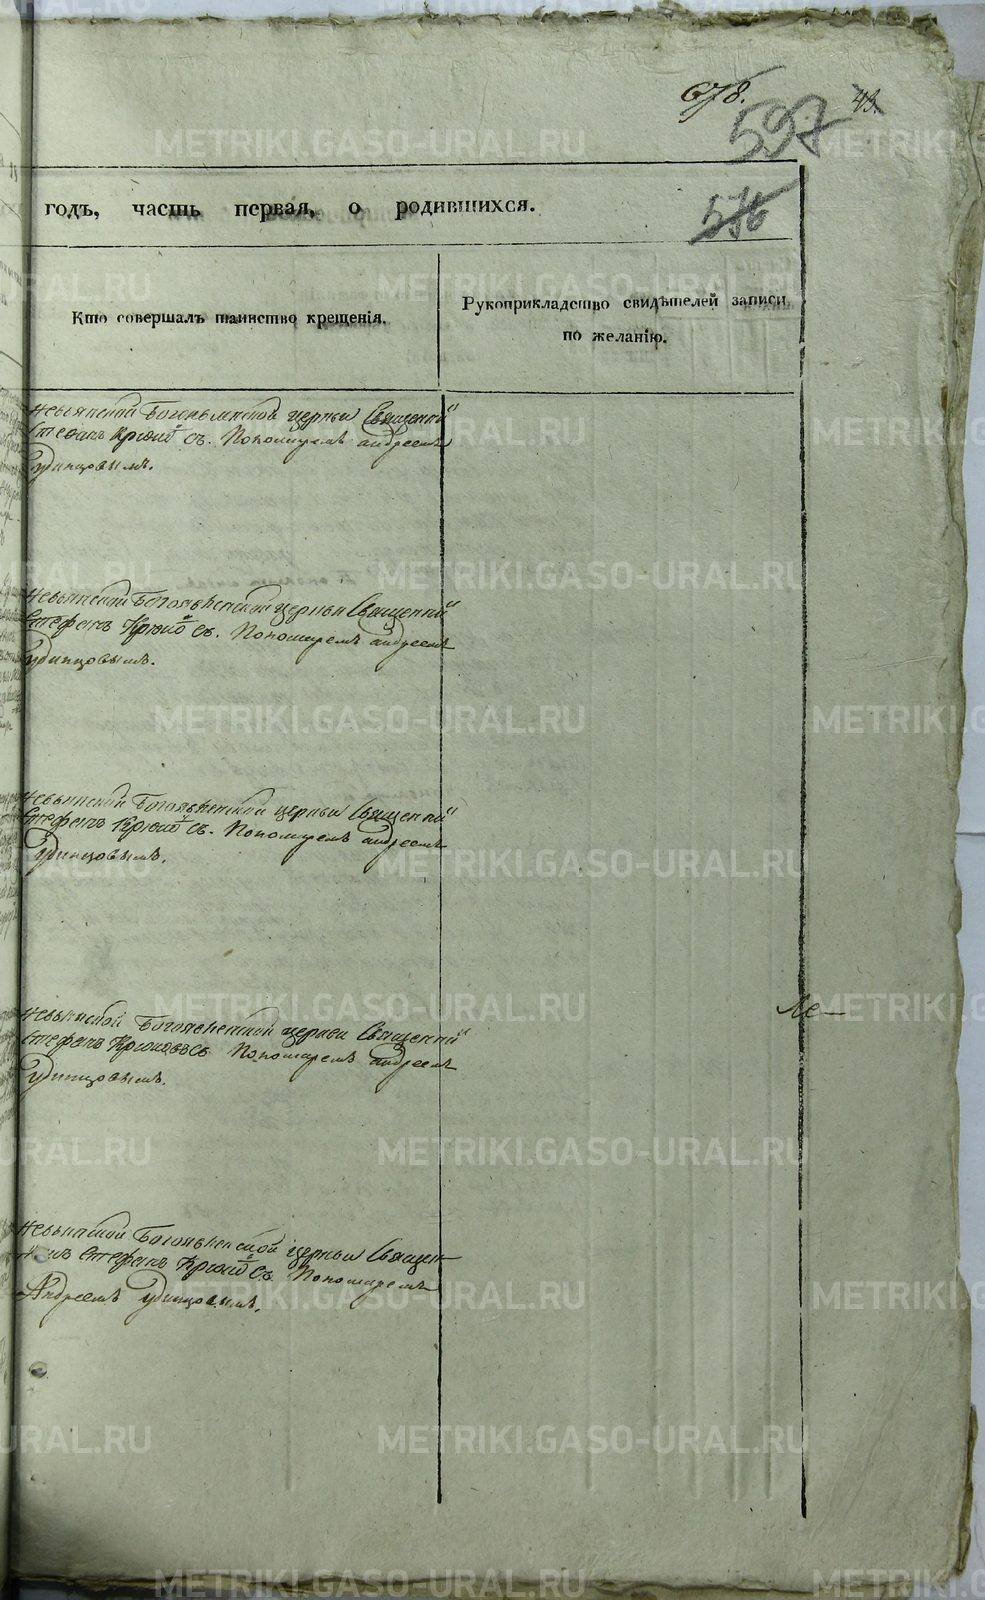 678.
597
43.
576
годъ, часть первая, о родившихся.
Кто совершалъ таинство крещенія.
Рукоприкладство свидѣтелей записи
по желанію.
Невьянской Богоявленской церкви Священни
Стефанъ Крюко съ. Пономаремъ андреемъ
удинцовымъ.
Невьянской Богоявленской церкви Священни
Стефанъ Крюко съ. Пономаремъ андреемъ
удинцовымъ.
Невьянской Богоявленской церкви Священни
Стефанъ Крюко съ. Пономаремъ андреемъ
удинцовымъ.
Невьянской Богоявленской церкви Священни
Стефанъ Крюковъ съ Пономаремъ андреемъ
удинцовымъ.
Невьянской Богоявленской церкви Священ
никъ Стефанъ Крюко съ. Пономаремъ
Андреемъ удинцовымъ.
METRIKI.GASO-URAL.RU